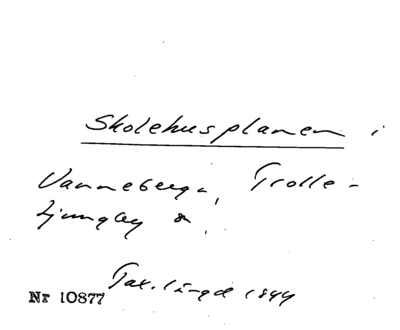 Skolehusplanen i
Vanneberga, Trolle-
ljungby sn.
Tax.längd 1844
Nr 10877